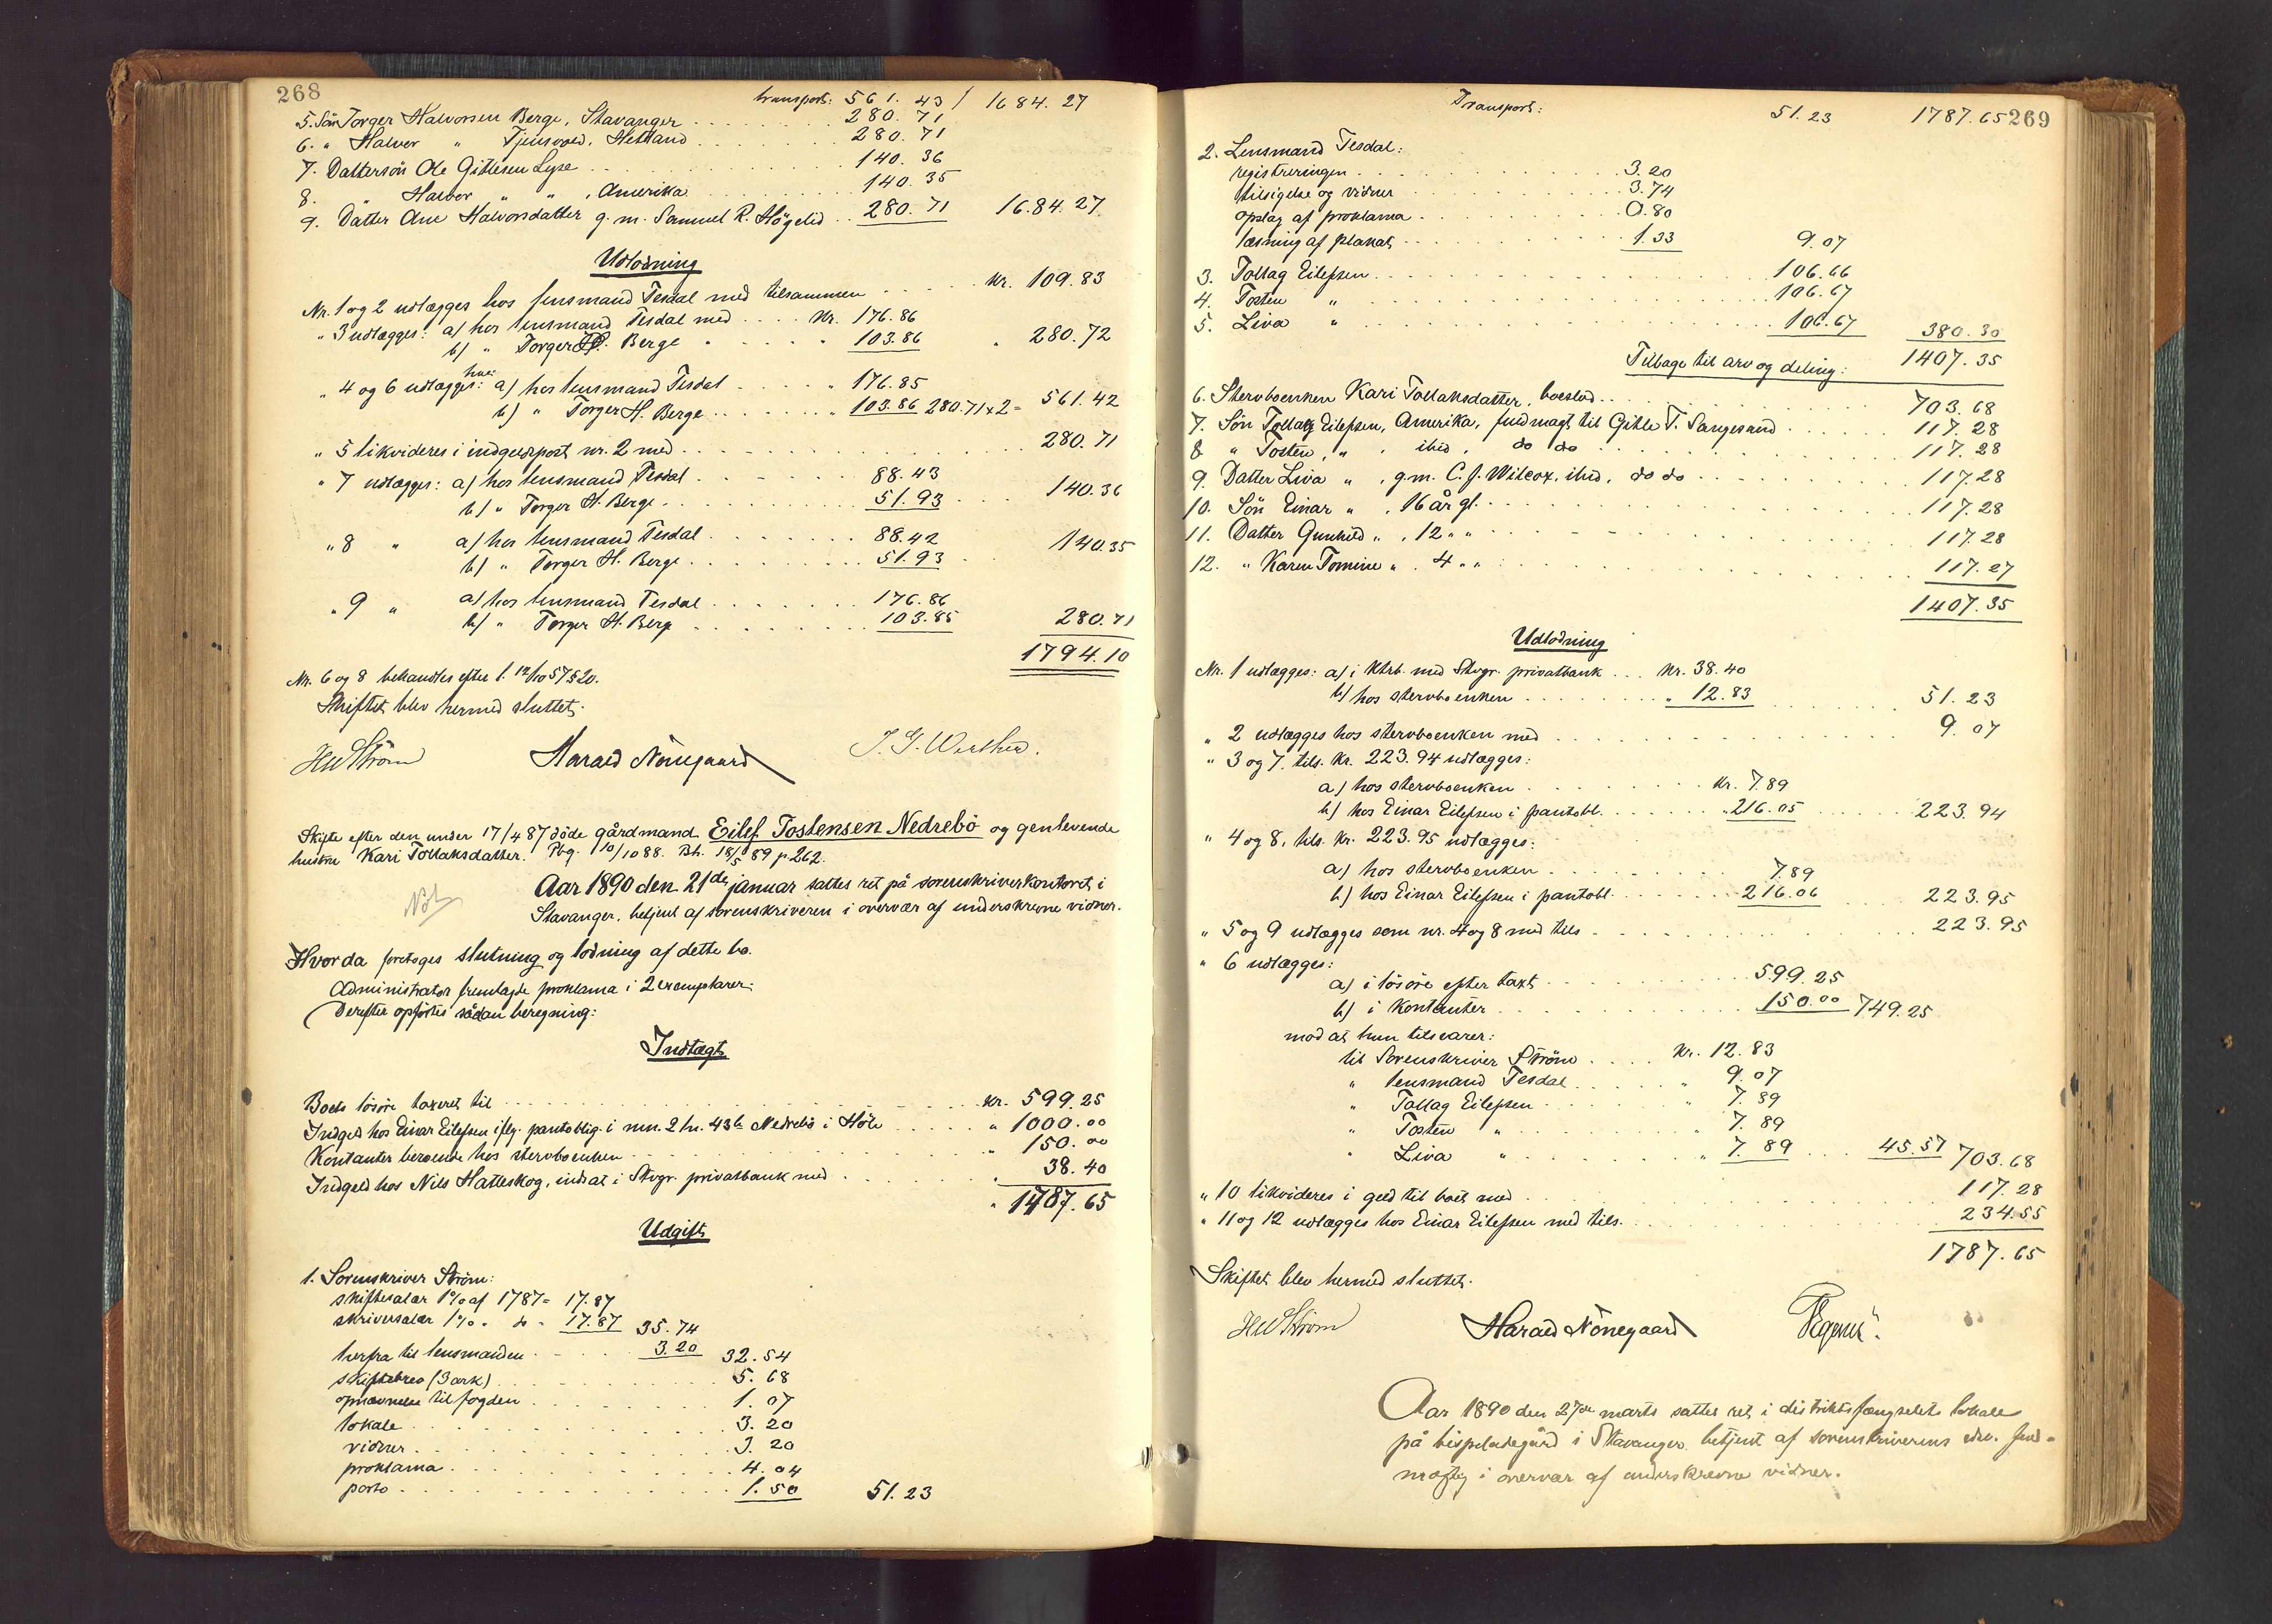 268
transport: 561.43 / 1684.27
5. Sön Torger Halvorsen Berge, Stavanger . . . 280.71
6. " Halvor " Tjensvold, Hetland . . . 280.71
7. Dattersön Ole Gitlesen Lyse . . . 140.36
8. " Halvor " " , Amerika . . . 140.35
9. Datter Ane Halvorsdatter g. m. Samuel R. Högelid . . 280.71 1684.27
Udlodning
Nr. 1 og 2 udlægges hos lensmand Tesdal med tilsammen . . . kr. 109.83
" 3 udlægges: a) hos lensmand Tesdal med . . . kr. 176.86
b) " Torger H. Berge " . . . " 103.86 " 280.72
" 4 og 6 udlægges hver: a) hos lensmand Tesdal . . . " 176.85
b) " Torger H. Berge . . . " 103.86 280.71 x 2 = 561.42
" 5 likvideres i indgeldspost nr. 2 med . . . 280.71
" 7 udlægges: a) hos lensmand Tesdal . . . 88.43
b) " Torger H. Berge . . . 51.93 . . . 140.36
" 8 " a) hos lensmand Tesdal . . . 88.42
b) " Torger H. Berge . . . 51.93 . 140.35
" 9 " a) hos lensmand Tesdal . . . 176.86
b) " Torger H. Berge . . . 103.85 280.71
1794.10
Nr. 6 og 8 behandles efter l. 12/10 57 § 20.
Skiftet blev hermed sluttet.
HWStröm Harald Nönegaard
Skifte efter den under 17/4 87 döde gårdmand Eilef Tostensen Nedrebö og genlevende
hustru Kari Tollaksdatter. Pbg. 10/10 88. Bh. 18/5 89 p. 262.
Aar 1890 den 21de januar sattes ret på sorenskriverkontoret i
Stavanger, betjent af sorenskriveren i overvær af underskrevne vidner.
Hvorda foretoges slutning og lodning af dette bo.
Administrator fremlagde proklama i 2 exemplarer.
Derefter opförtes sådan beregning:
Indtægt
Boets lösöre taxeret til . . . kr. 599.25
Indgeld hos Einar Eilefsen iflg. pantoblig. i mn. 2 ln. 43b Nedrebö i Höle . . . " 1000.00
Kontanter beroende hos stervboenken . . . " 150.00
Indgeld hos Nils Hatleskog, indsat i Stvgr. privatbank med . . . 38.40
" 1787.65
Udgift
1. Sorenskriver Ström:
skiftesalær 1% af 1787 = 17.87
skriversalær 1% " do " 17.87 35.74
herfra til lensmanden . . . 3.20 32.54
skiftebrev (3 ark) . . . 5.68
opnævnelse til fogden . . . 1.07
lokale . . . 3.20
vidner . . . 3.20
proklama . . . 4.04
porto . . . 1.50 51.23
Transport: 51.23 1787.65 269
2. Lensmand Tesdal:
registreringen . . . 3.20
tilsigelse og vidner . . . 3.74
opslag af proklama . . . 0.80
læsning af plakat . . . 1.33 9.07
3. Tollag Eilefsen . . . 106.66
4. Tosten " . . . 106.67
5. Liva " . . . 106.67 380.30
Tilbage til arv og deling: 1407.35
6. Stervboenken Kari Tollaksdatter, boeslod . . . 703.68
7. Sön Tollag Eilefsen, Amerika, fuldmagt til Gitle T. Sangesand . . . 117.28
8 " Tosten, " , ibid, do do . . . 117.28
9. Datter Liva " , g.m. C. J. Wilcox, ibid, do do . . . 117.28
10. Sön Einar " , 16 år gl. . . . 117.28
11. Datter Gunhild " , 12 " " . . . 117.28
12. " Karen Tomine " , 4 " " . . . 117.27
1407.35
Udlodning
Nr. 1 udlægges: a) i ktrb. med Stvgr. privatbank . . . kr. 38.40
b) hos stervboenken . . . " 12.83 . . . 51.23
" 2 udlægges hos stervboenken med . . . 9.07
" 3 og 7, tils. kr. 223.94 udlægges:
a) hos stervboenken . . . kr. 7.89
b) hos Einar Eilefsen i pantobl. . . . " 216.05 . . . 223.94
" 4 og 8, tils. kr. 223.95 udlægges:
a) hos stervboenken . . . 7.89
b) hos Einar Eilefsen i pantobl. . . . 216.06 . . . 223.95
" 5 og 9 udlægges som nr. 4 og 8 med tils . . . 223.95
" 6 udlægges:
a) i lösöre efter taxt . . . 599.25
b) i kontanter . . . 150.00 749.25
mod at hun tilsvarer:
til Sorenskriver Ström . . . kr. 12.83
" lensmand Tesdal . . . " 9.07
" Tollag Eilefsen . . . " 7.89
" Tosten " . . . " 7.89
" Liva " . . . " 7.89 . . . 45.57 703.68
" 10 likvideres i geld til boet med . . . 117.28
" 11 og 12 udlægges hos Einar Eilefsen med tils. . . . 234.55
1787.65
Skiftet blev hermed sluttet.
HWStröm Harald Nönegaard
Aar 1890 den 27de marts sattes ret i distriktsfængselets lokale
på bispeladegård i Stavanger, betjent af sorenskriverens edsv. fuld-
mægtig i overvær af underskrevne vidner.